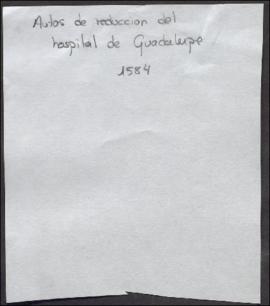 Autos de reduccion del
hospital de Guadalupe
1584